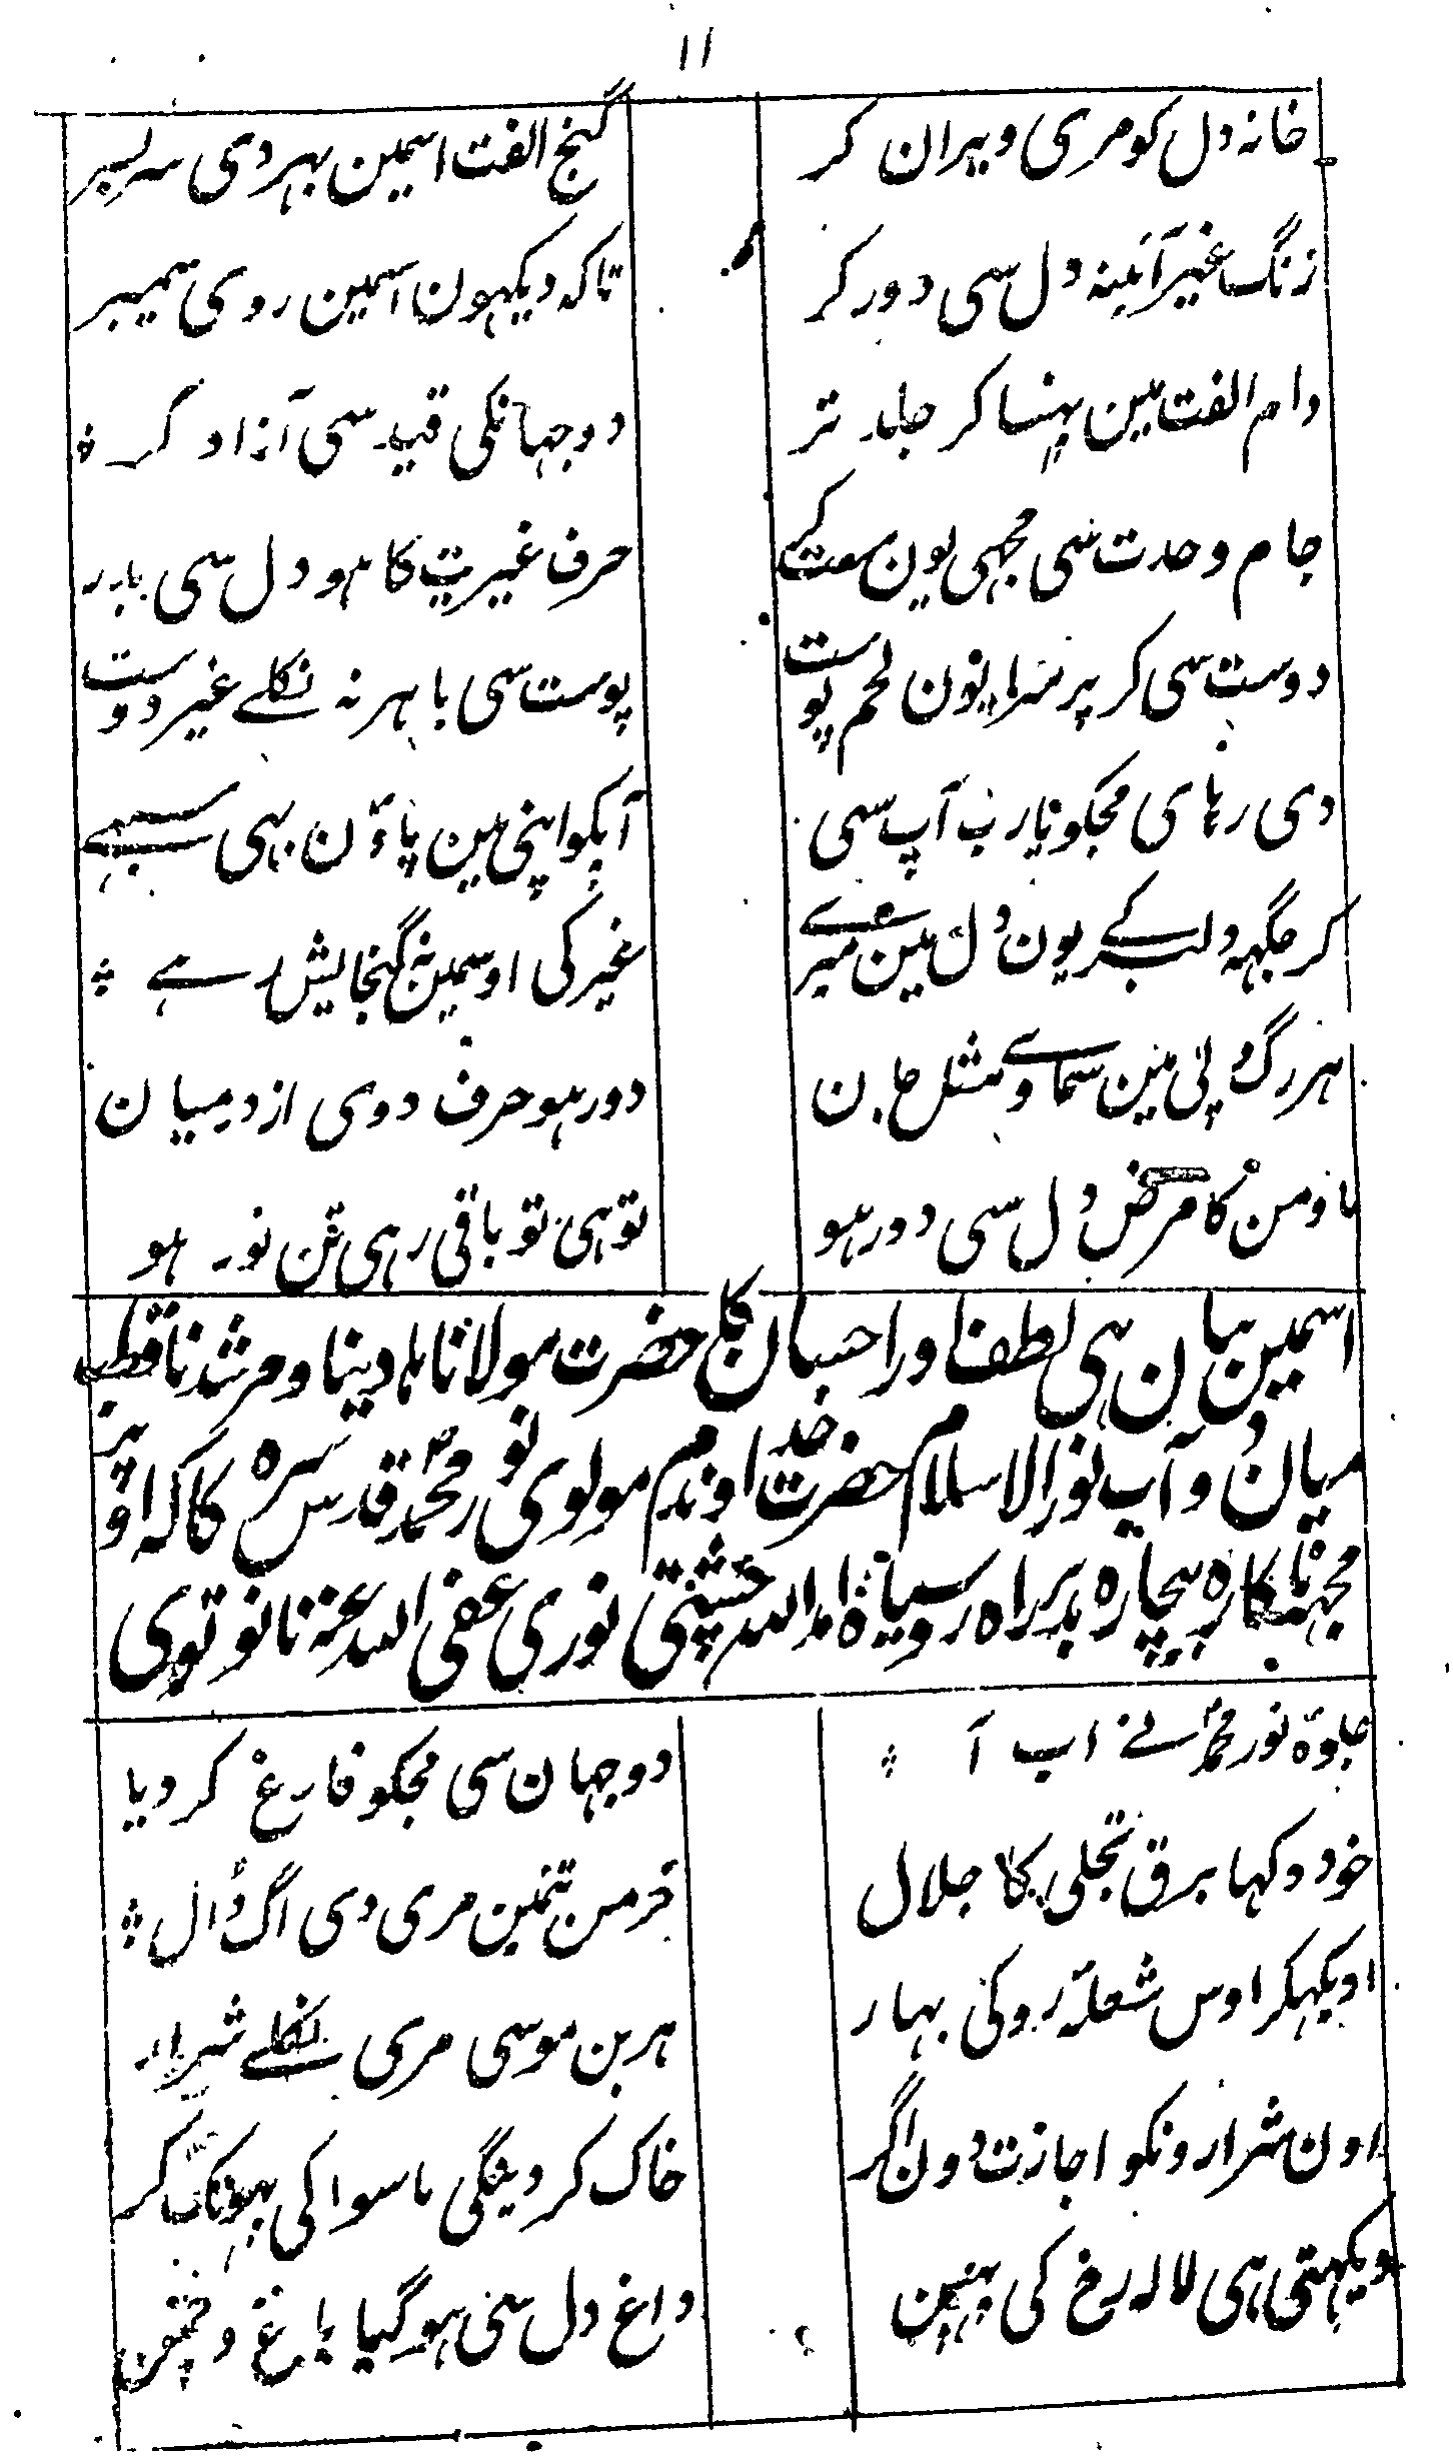 ۱۱
خانہ دل کو مری ویران کر
گنج الفت اسمین بہر دی سربسر
زنگ غیر آئینہ دل سی دور کر
تاکہ دیکہون اسمین روی سیمبر
دام الفت مین پہنسا کر جلد تر
دو جہانکی قید سی آزاد کر
جام وحدت سی مجہی یون مست کر
حرف غیریت کا ہو دل سی بدر
دوست سی کر پر مرا یون لحم پوست
پوست سی باہر نہ نکلے غیر دوست
دی رہای مجکو یا رب آپ سی
آپکو اپنی مین پاؤن بہی
کر جگہہ دلبر کے یون دل مین میرے
غیر کی اوسمین نہ گنجایش رہے
ہر رگ و پی مین سماوے مثل جان
دور ہو حرف دوی از درمیان
ما و من کا مرض دل سی دور ہو
تو ہی تو باقی رہی تن نور ہو
اسمین بیان ہی لطف اور احسان کا حضرت مولانا ہادینا و مرشدنا قطب
میان دو آب نور الاسلام حضرت خداوندم مولوی نور محمد قدس سرہ کا کہ اوپر
مجہہ ناکارہ بیچارہ بدراہ روسیاہ امداد اللہ چشتی نوری عفی اللہ عنہ نانوتوی
جلوہ نور محمد نے اب آ
دو جہان سی مجکو فارغ کر دیا
خود دکہا برق تجلی کا جلال
خرمن تنمین مری دی اگ ڈال
دیکہکر اوس شعلہ رو کی بہار
ہر بن مو سی مری نکلے شرار
اون شرارونکو اجازت دون اگر
خاک کر دینگی ماسوا کی پہونک کر
دیکہتی ہی لالہ رخ کی
داغ دل سی ہو گیا باغ و